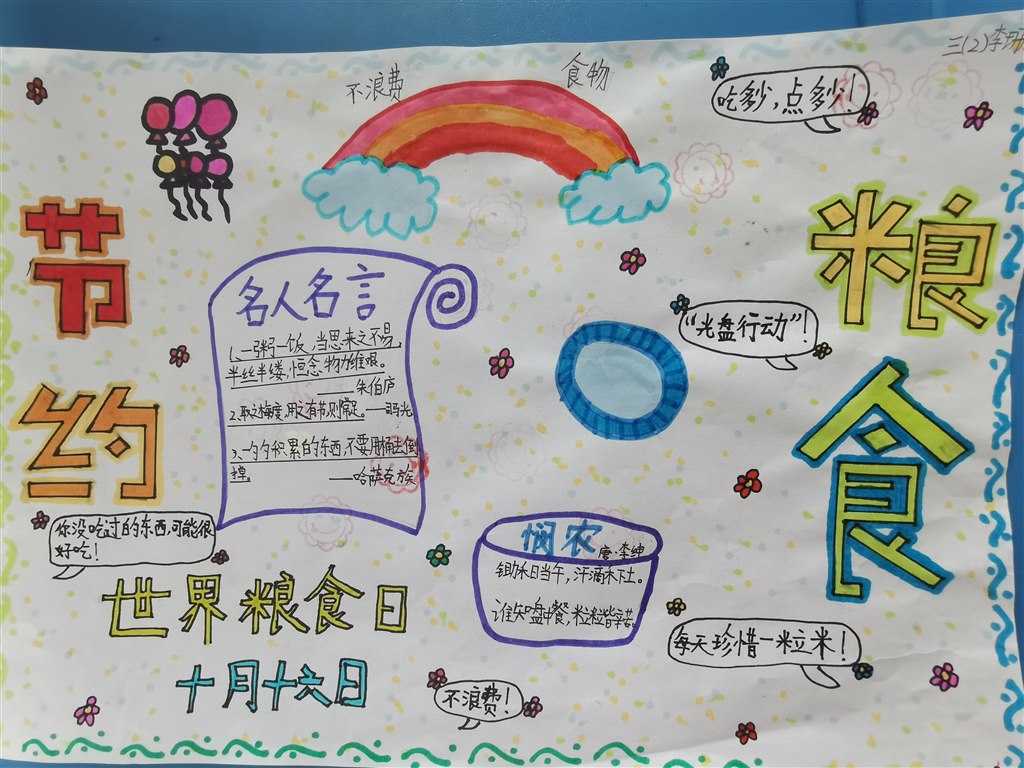 三(2)李
不浪费 食物
吃多少,点多少!
节约
粮食
名人名言
1、一粥一饭,当思来之不易,
半丝半缕,恒念物力维艰。
——朱伯庐
2、取之有度,用之有节,则常足。——司马光
3、一勺勺积累的东西,不要用桶去倒
掉。
——哈萨克族
“光盘行动”!
你没吃过的东西,可能很
好吃!
悯农
唐·李绅
锄禾日当午,汗滴禾下土。
谁知盘中餐,粒粒皆辛苦。
世界粮食日
十月十六日
每天珍惜一粒米!
不浪费!